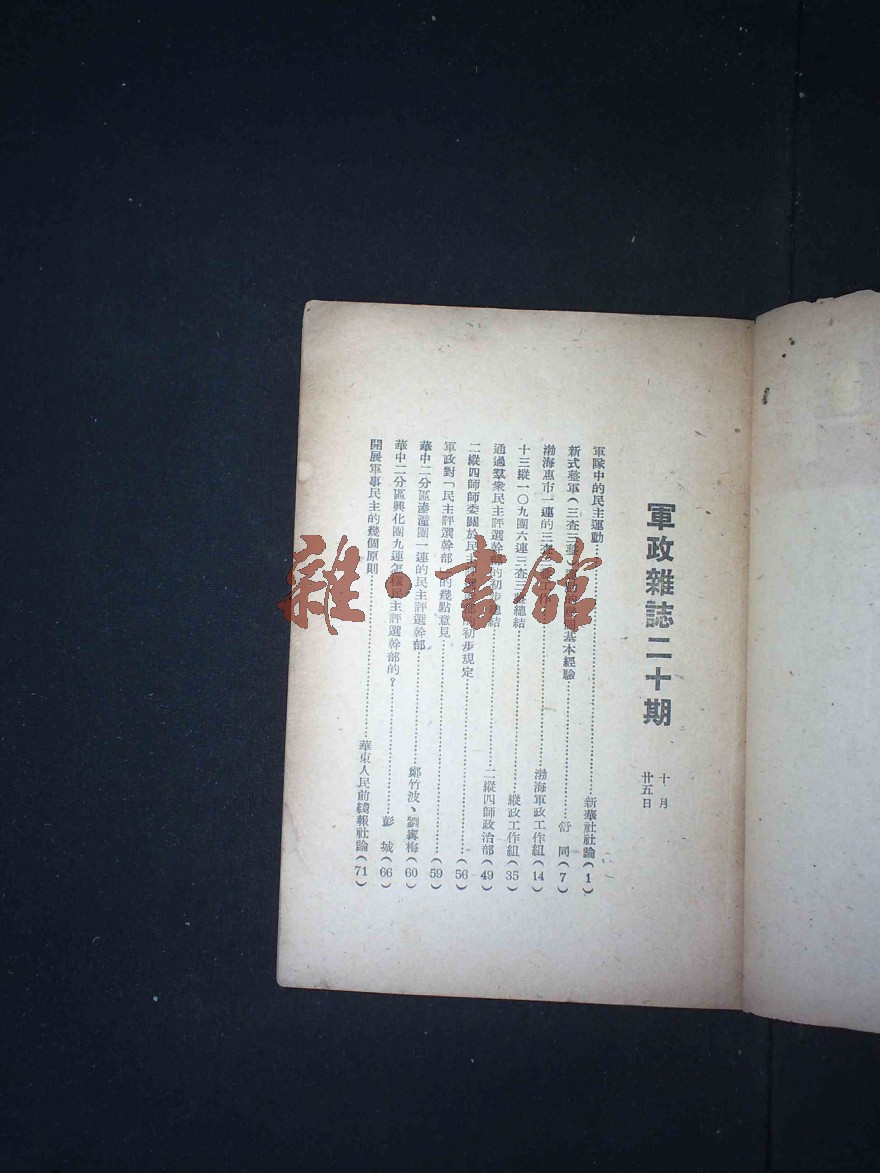 軍政雜誌二十期
十月
廿五日
軍隊中的民主運動……新華社社論(1)
新式整軍(三查三整)基本經驗……舒同(7)
渤海惠市一連的三查……渤海軍政工作組(14)
十三縱一〇九團六連三查三整總結……縱政工作組(35)
通過羣衆民主評選幹部的初步總結……二縱四師政治部(49)
二縱四師師委關於民主初步規定……(56)
軍政對「民主評選幹部」的幾點意見……(59)
華中二分區溱潼團一連的民主評選幹部……鄭竹波、劉寒梅(60)
華中二分區興化團九連怎樣民主評選幹部的?……彭城(66)
開展軍事民主的幾個原則……華東人民前綫報社論(71)
雜·書館